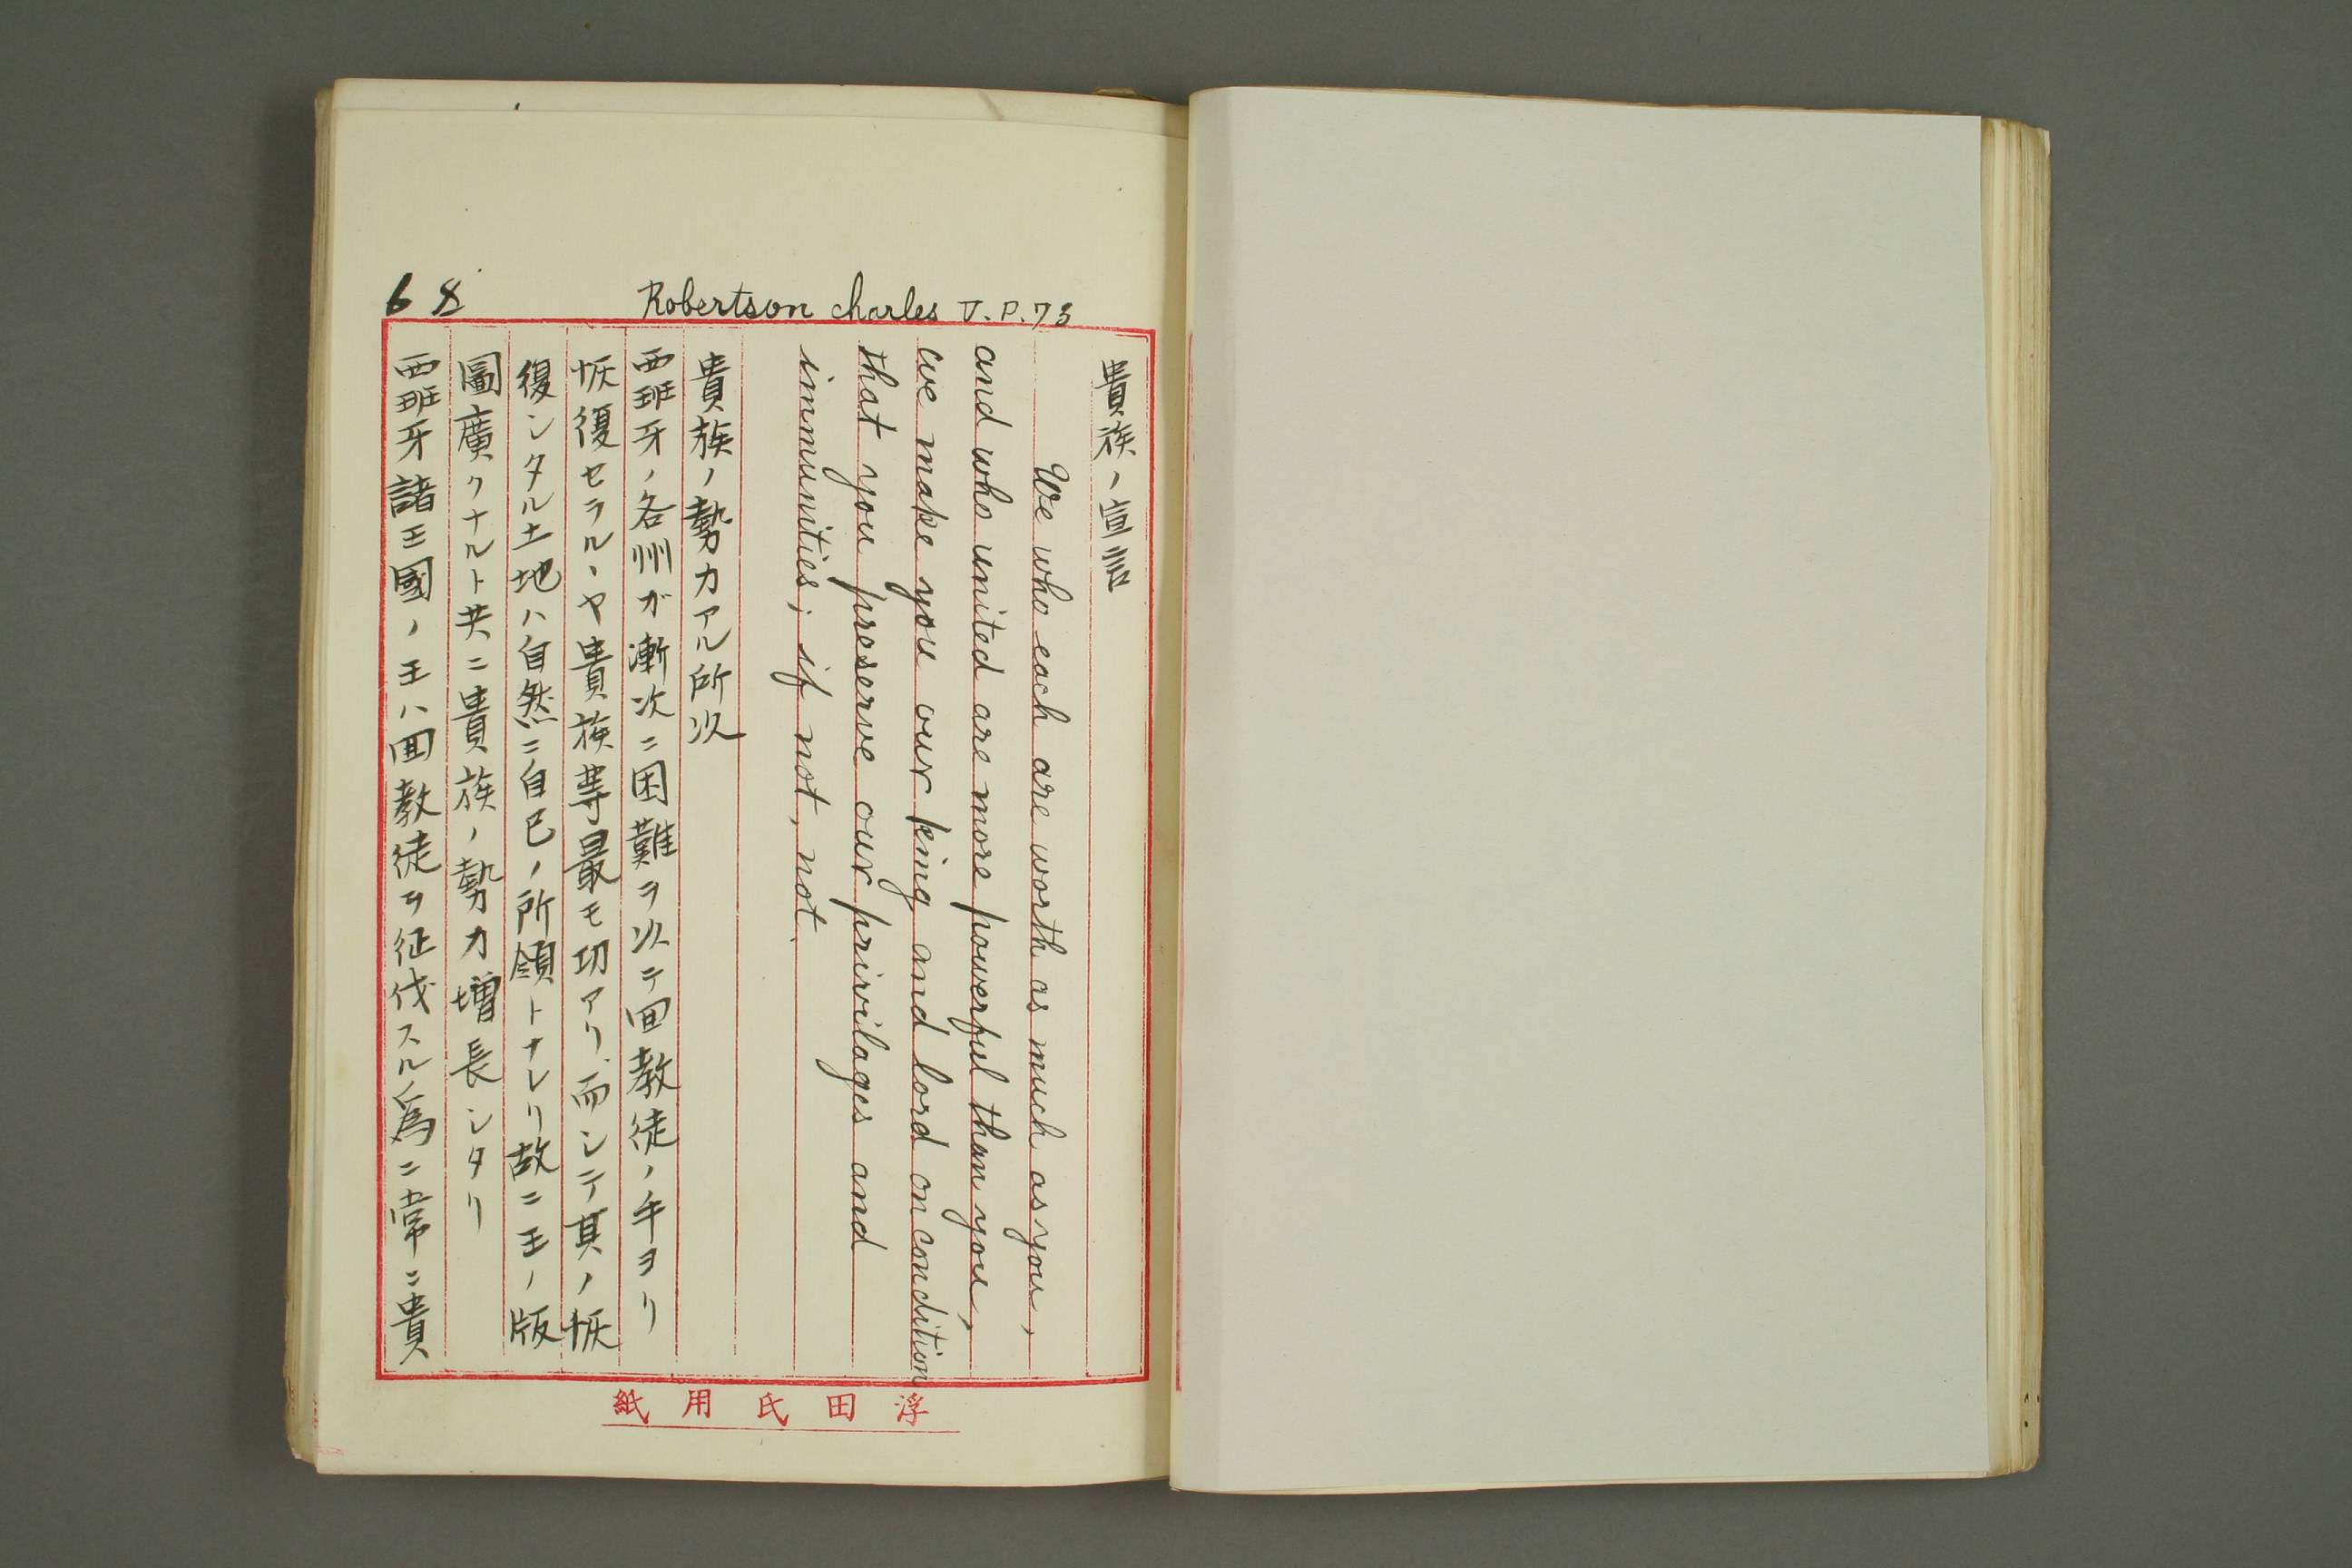 68
Robertson charles V. P. 73
貴族ノ宣言
We who each are worth as much as you,
and who united are more powerful than you,
we make you our king and lord on condition
that you preserve our privilages and
immunities; if not, not.
貴族ノ勢力アル所以
西班牙ノ各州ガ漸次ニ困難ヲ以テ回教徒ノ手ヨリ
恢復セラルヽヤ貴族等最モ功アリ、而シテ其ノ恢
復シタル土地ハ自然ニ自己ノ所領トナレリ故ニ王ノ版
圖廣クナルト共ニ貴族ノ勢力増長シタリ
西班牙諸王國ノ王ハ回教徒ヲ征伐スル為ニ常ニ貴
浮田氏用紙